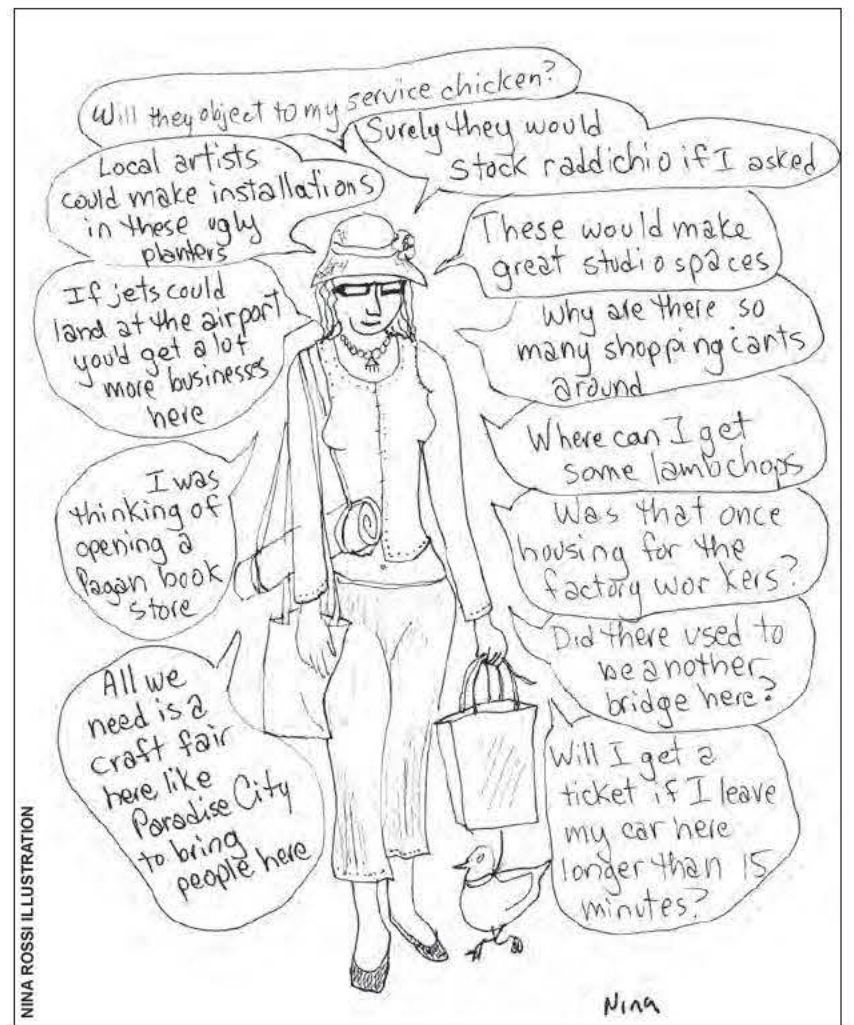 Will they object to my service chicken?
Surely they would
stock raddichio if I asked
Local artists
could make installations
in these ugly
planters
These would make
great studio spaces
If jets could
land at the airport
you'd get a lot
more businesses
here
Why are there so
many shopping carts
around
Where can I get
some lambchops
I was
thinking of
opening a
Pagan book
store
Was that once
housing for the
factory workers?
Did there used to
be another
bridge here?
All we
need is a
craft fair
here like
Paradise City
to bring
people here
Will I get a
ticket if I leave
my car here
longer than 15
minutes?
NINA ROSSI ILLUSTRATION
Nina